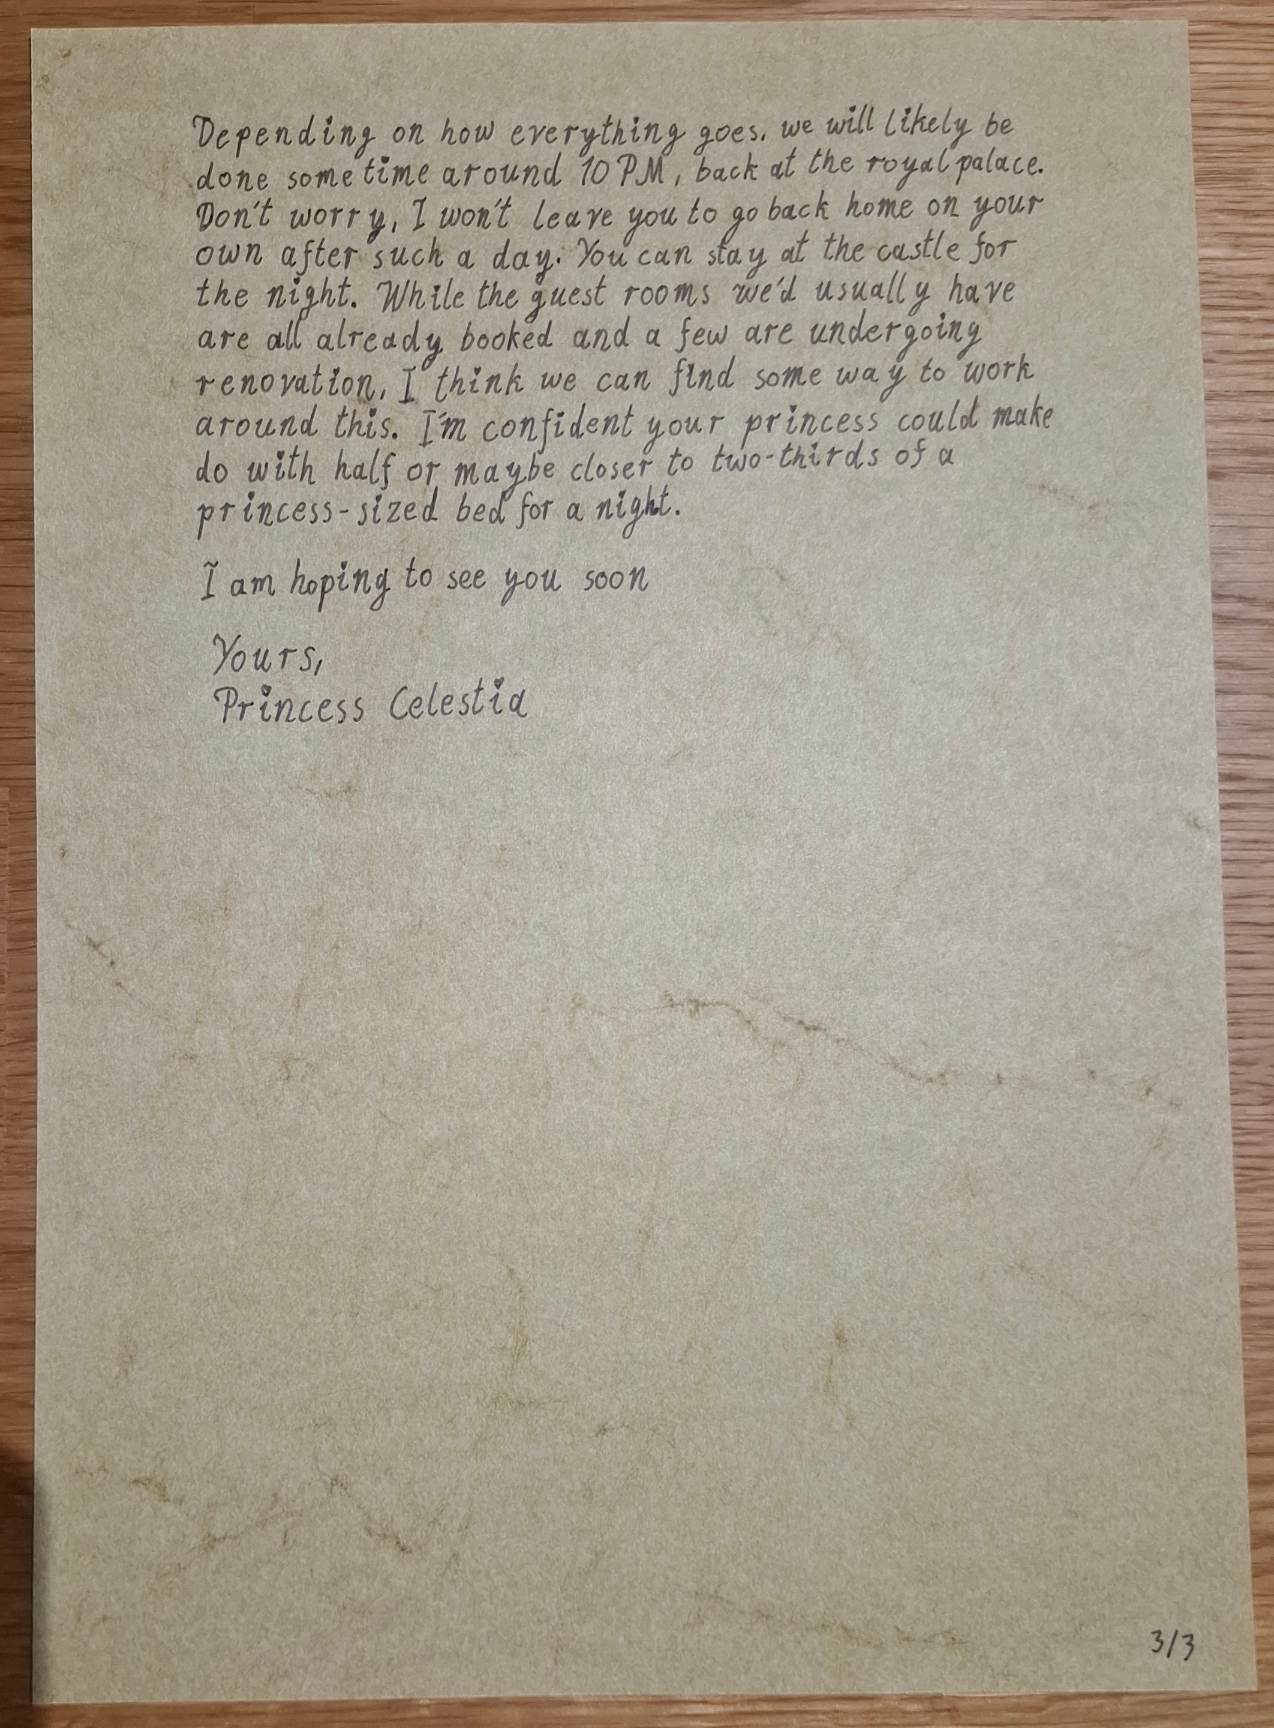 Depending on how everything goes, we will likely be
done sometime around 10 PM, back at the royal palace.
Don't worry, I won't leave you to go back home on your
own after such a day. You can stay at the castle for
the night. While the guest rooms we'd usually have
are all already booked and a few are undergoing
renovation, I think we can find some way to work
around this. I'm confident your princess could make
do with half or maybe closer to two-thirds of a
princess-sized bed for a night.
I am hoping to see you soon
Yours,
Princess Celestia
3/3